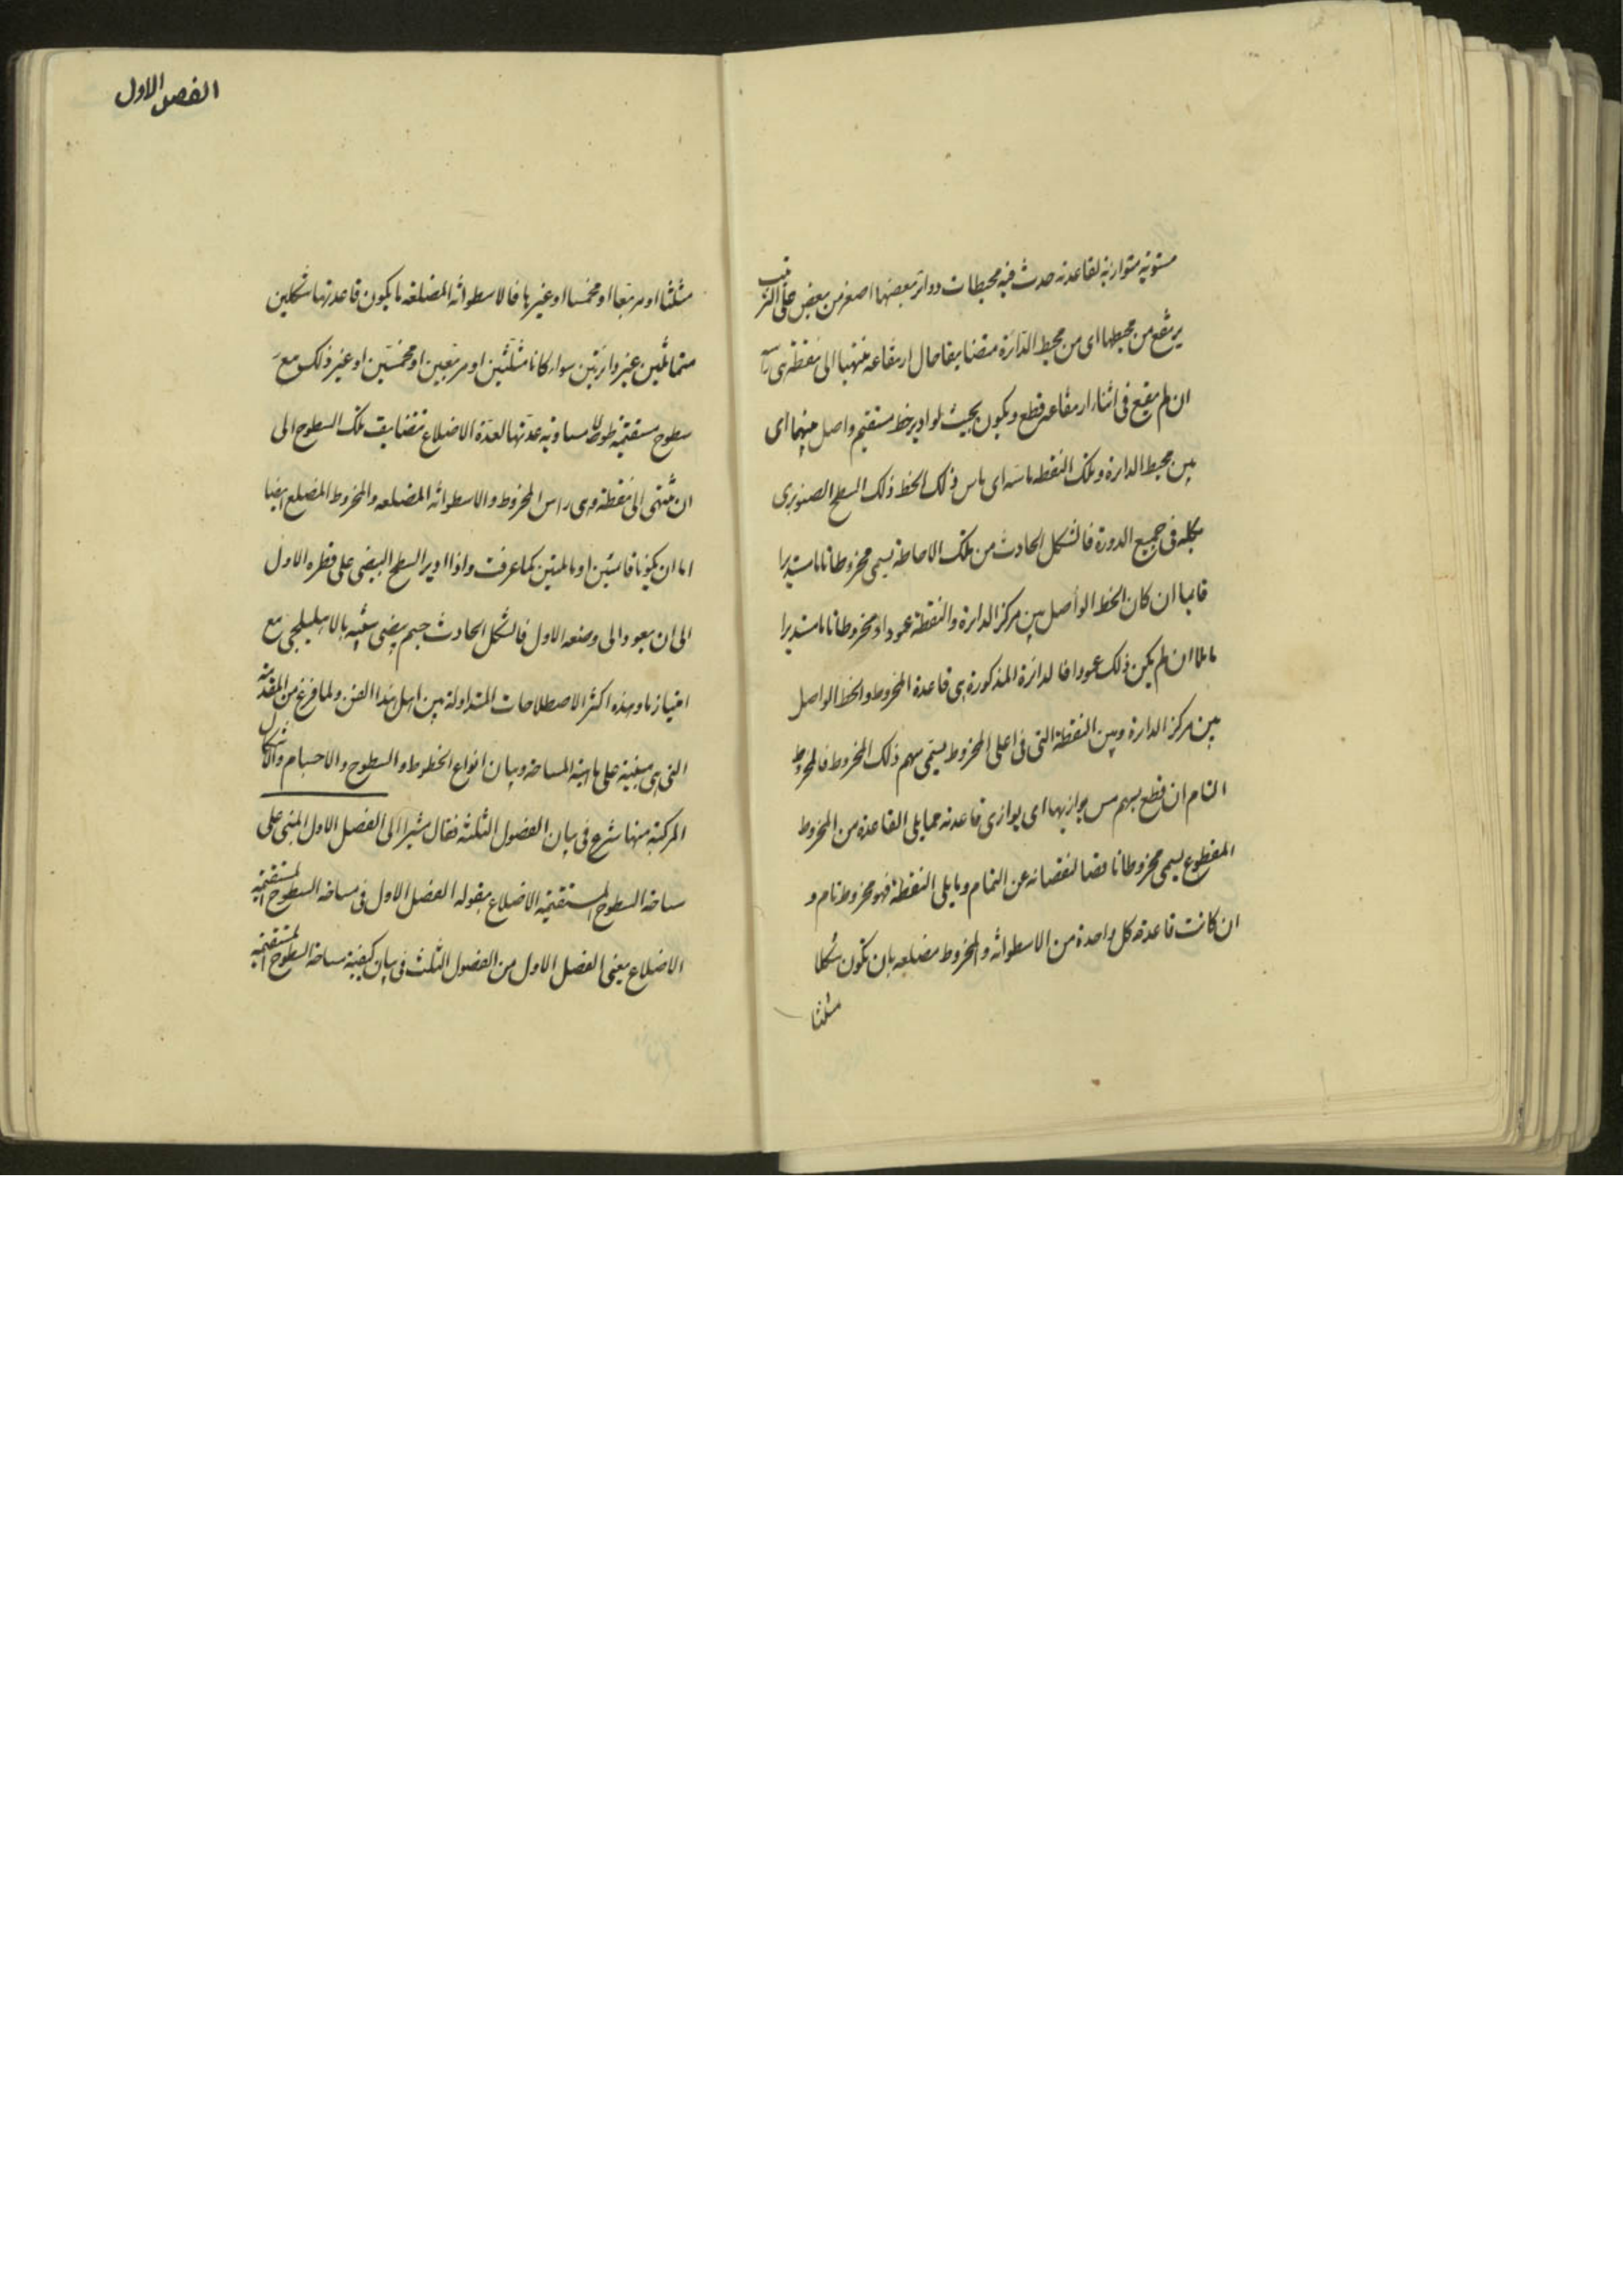 مستوية متوازية لقاعدته حدث فيه محيطات دوائر بعضها اصغر من بعض على الترتيب
يرتفع من محيطها اى من محيط الدائرة متضايقا حال ارتفاعه منتهيا الى نقطة هى راسه
ان لم يقع فى اثناء ارتفاعه قطع ويكون بحيث لو ادير خط مستقيم واصل بينهما اى
بين محيط الدائرة وتلك النقطة ماسه اى ماس ذلك الخط ذلك السطح الصنوبرى
بكله فى جميع الدورة فالشكل الحادث من تلك الاحاطة يسمى مخروطا تاما مستديرا
قائما ان كان الخط الواصل بين مركز الدائرة والنقطة عمودا او مخروطا تاما مستديرا
مائلا ان لم يكن ذلك عمودا فالدائرة المذكورة هى قاعدة المخروط والخط الواصل
بين مركز الدائرة وبين النقطة التى فى اعلى المخروط يسمى سهم ذلك المخروط فالمخروط
التام ان قطع بسهم يوازيها اى يوازى قاعدته مما يلى القاعدة من المخروط
المقطوع يسمى مخروطا ناقصا لنقصانه عن التمام وما يلى النقطة فهو مخروط تام و
ان كانت قاعدة كل واحدة من الاسطوانة والمخروط مضلعه بان تكون شكلا
مثلثا
الفصل الاول
مثلثا او مربعا او مخمسا او غيرها فالاسطوانة المضلعة ما يكون قاعدتها شكلين
متماثلين غير دائرتين سواء كانا مثلثين او مربعين او مخمسين او غير ذلك مع
سطوح مستقيمة طولا مساوية عدتها لعدة الاضلاع تتضايق تلك السطوح الى
ان تنتهى الى نقطة وهى راس المخروط والاسطوانة المضلعه والمخروط المضلع ايضا
اما ان يكونا قائمتين او مائلتين كما عرفت واذا ادير السطح البيضى على قطره الاول
الى ان يعود الى وضعه الاول فالشكل الحادث جسم بيضى شبيه بالاهليلجى مع
امتياز ما وهذه اكثر الاصطلاحات المتداولة بين اهل هذا الفن ولما فرغ من المقدمة
التى هى مبنية على ماهية المساحة وبيان انواع الخطوط والسطوح والاجسام والاشكال
المركبة منها شرع فى بيان الفصول الثلثة فقال مشيرا الى الفصل الاول المبنى على
مساحة السطوح المستقيمة الاضلاع بقوله الفصل الاول فى مساحة السطوح المستقيمة
الاضلاع يعنى الفصل الاول من الفصول الثلث فى بيان كيفية مساحة السطوح المستقيمة